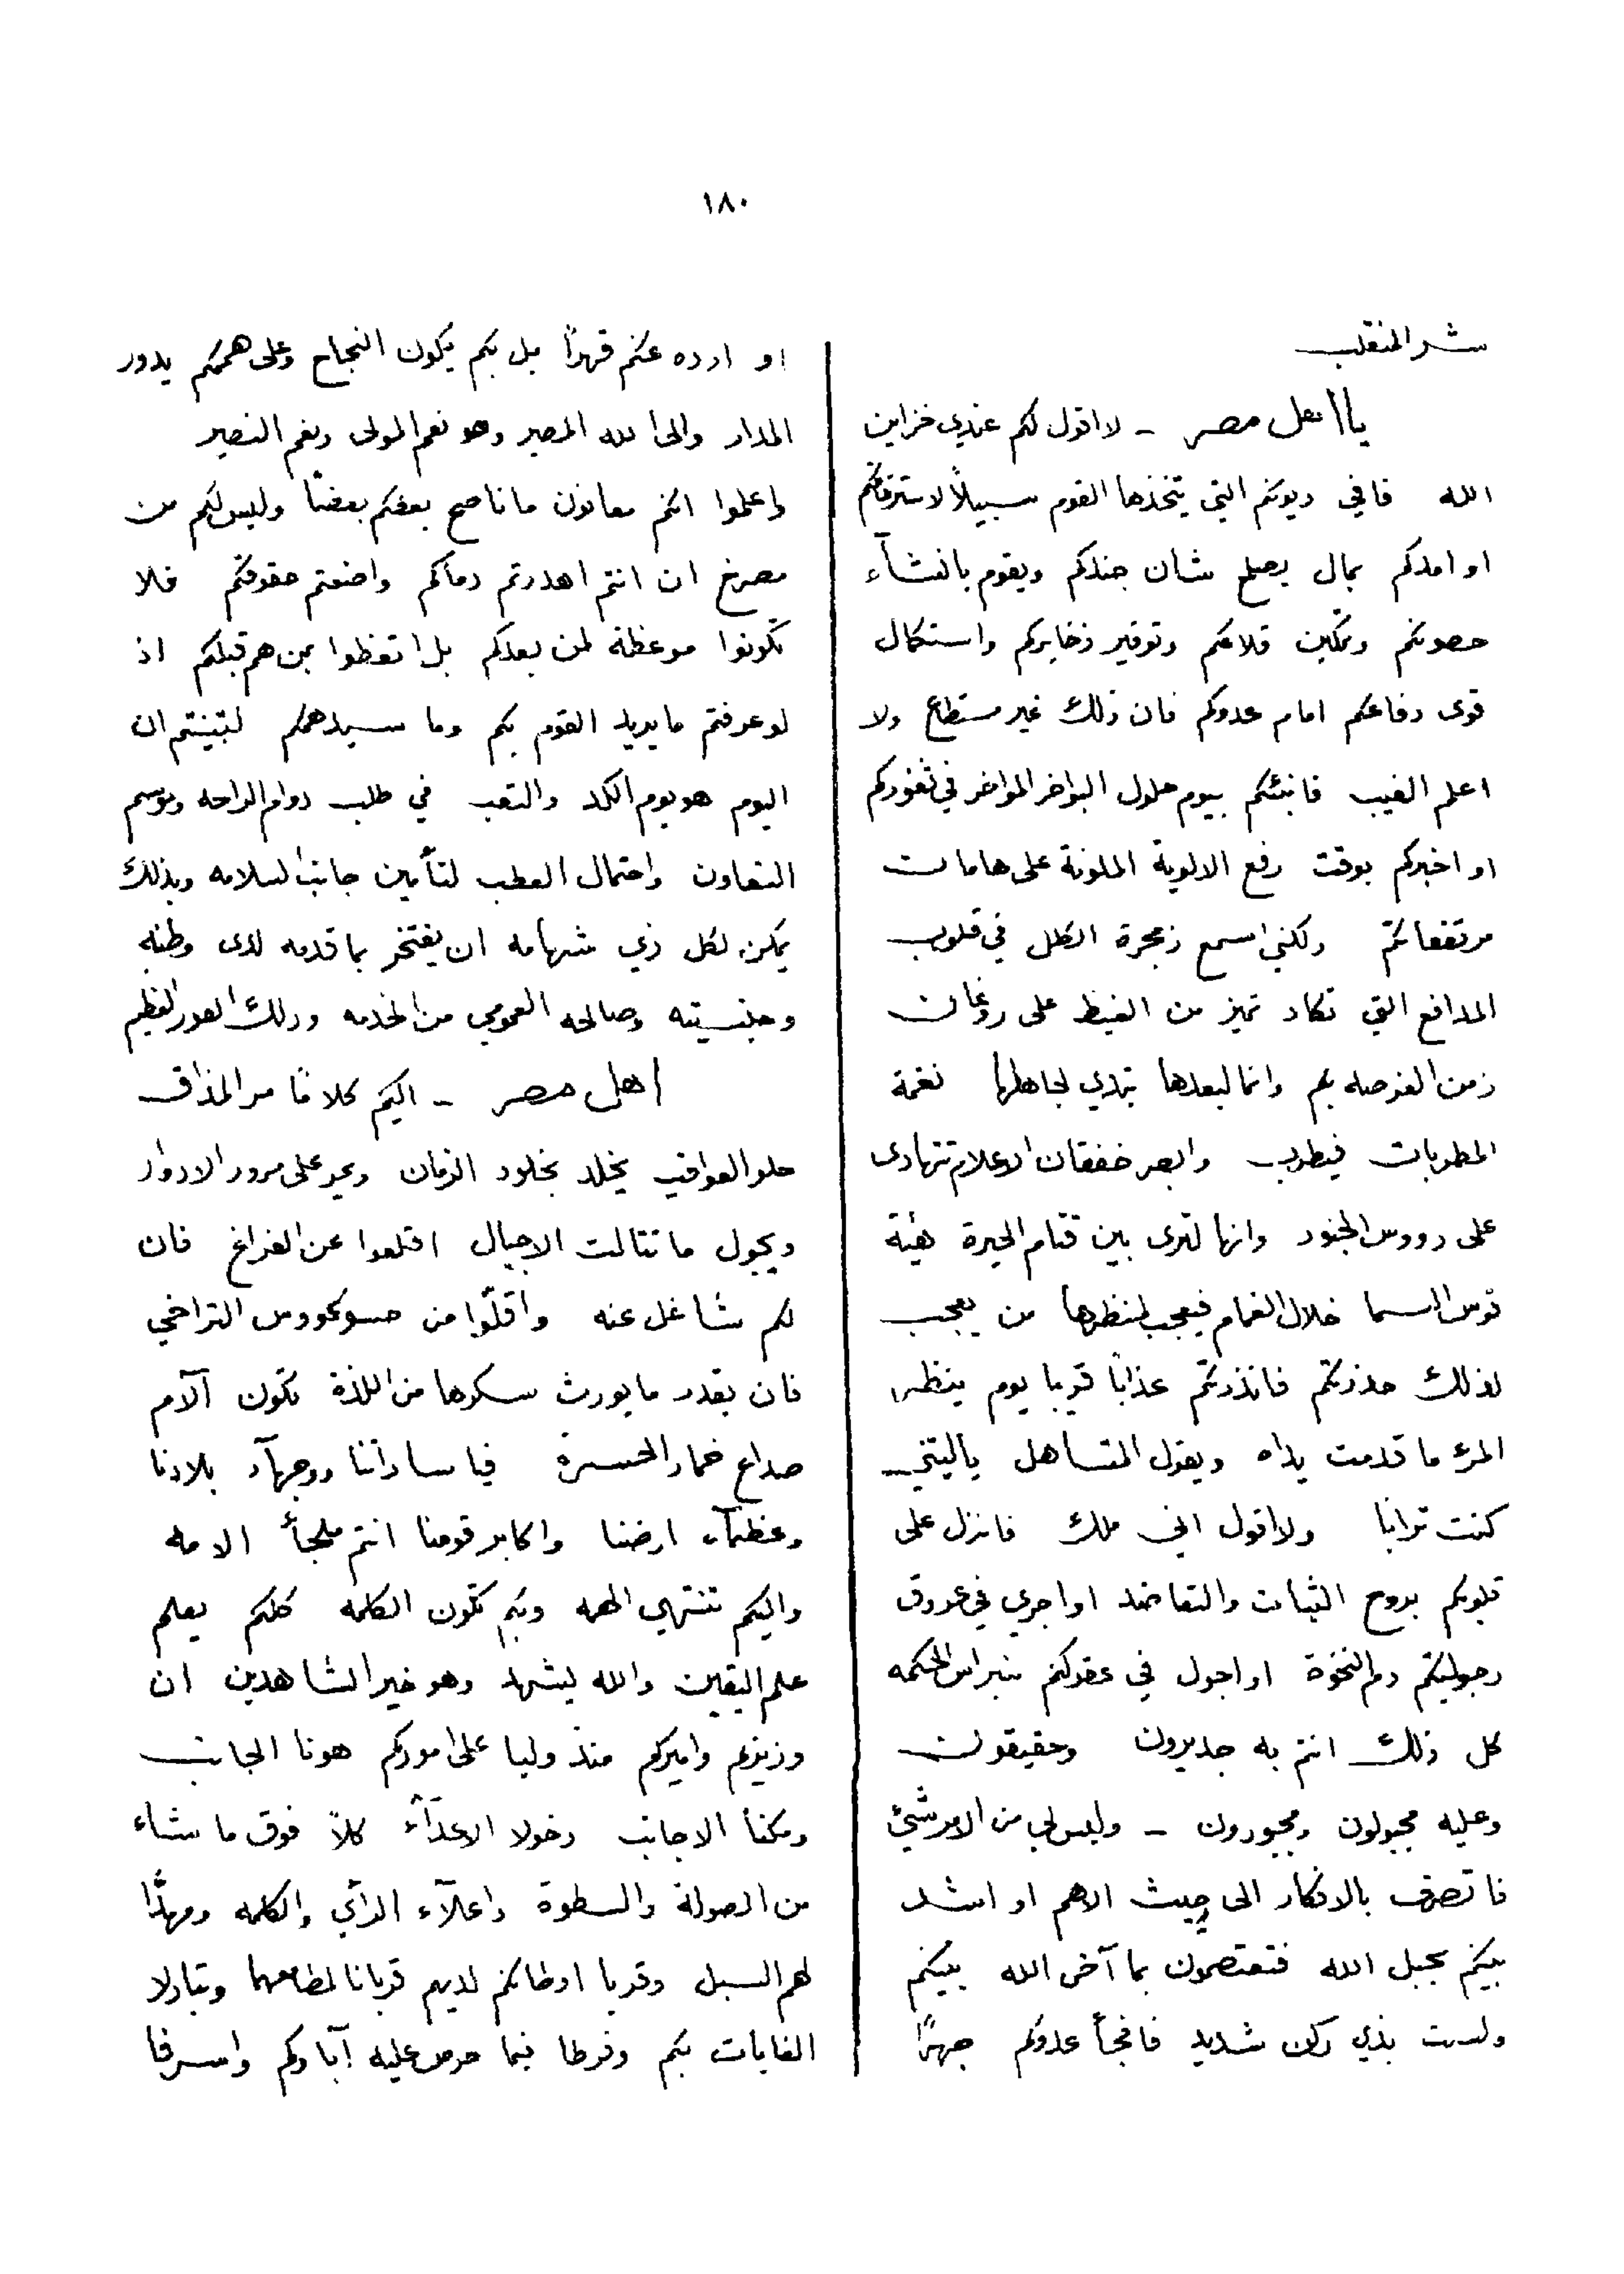 ١٨٠
شر المنقلب
يا اهل مصر - لا اقول لكم عندي خزاين
الله فافي ديونكم التي يتخذها القوم سبيلاً لاسترقاقكم
او امدكم بمال يصلح شان جندكم ويقوم بانشآء
حصونكم وتمكين قلاعكم وتوفير ذخايركم واستكمال
قوى دفاعكم امام عدوكم فان ذلك غير مستطاع ولا
اعلم الغيب فانبئكم بيوم حلول البواخر المواخر في ثغوركم
او اخبركم بوقت رفع الالوية الملونة على هامات
مرتفعاتكم ولكني اسمع زمجرة الكلل في قلوب
المدافع التي تكاد تميز من الغيظ على روغان
زمن الفرصه بكم وانما لبعدها تبدي لجاهلها نغمة
المطربات فيطرب وابصر خفقان الاعلام تتهادى
على رووس الجنود وانها لترى بين قتام الحيرة هيئة
قوس السما خلال الغمام فيعجب لمنظرها من يعجب
لذلك حذرتكم فانذرتكم عذابًا قريبا يوم ينظر
المرء ما قدمت يداه ويقول المتساهل ياليتني
كنت ترابا ولا اقول اني ملك فانزل على
قلوبكم بروح الثبات والتعاضد او اجري في عروق
رجوليتكم دم النخوة او اجول في عقولكم بنبراس الحكمه
كل ذلك انتم به جديرون وحقيقون
وعليه مجبولون ومجبورون - وليس لي من الامر شيئ
فاتصرف بالافكار الى حيث الاهم او اشد
بينكم بحبل الله فتعتصمون بما آخى الله بينكم
ولست بذي ركن شديد فافجأ عدوكم جهرًا
او ارده عنكم قهرًا بل بكم يكون النجاح وعلى هممكم يدور
المدار والى الله المصير وهو نعم المولى ونعم النصير
واعلموا انكم معانون ما ناصح بعضكم بعضًا وليس لكم من
مصرخ ان انتم اهدرتم دماكم واضعتم حقوقكم فلا
تكونوا موعظة لمن بعدكم بل اتعظوا بمن هم قبلكم اذ
لو عرفتم ما يريد القوم بكم وما سيدهمكم لتبينتم ان
اليوم هو يوم الكد والتعب في طلب دوام الراحه وموسم
التعاون واحتمال العطب لتأمين جانب السلامه وبذلك
يمكن لكل ذي شهامه ان يفتخر بما قدمه لدى وطنه
وجنسيته وصالحه العمومي من الخدمه وذلك الفوز العظيم
اهل مصر - اليكم كلامًا مر المذاق
حلو العواقب يخلد بخلود الزمان ويمر على مرور الادوار
ويجول ما تتالت الاجيال اقلعوا عن الفراغ فان
لكم شاغل عنه واقلّوا من حسو كووس التراخي
فان بقدر ما يورث سكرها من اللذة تكون آلآم
صداع خمار الحسرة فيا ساداتنا ووجهآء بلادنا
وعظمآء ارضنا واكابر قومنا انتم ملجأ الامه
واليكم تنتهي المهمه وبكم تكون الكلمه كلكم يعلم
علم اليقين والله يشهد وهو خير الشاهدين ان
وزيركم واميركم منذ وليا على اموركم هونا الجانب
ومكنا الاجانب وخولا الاعدآء كلاً فوق ما شاء
من الصولة والسطوة واعلآء الرأي والكلمه ومهدًا
لهم السبل وقربا اوطانكم لديهم قربانا لمطامعهما وتبادلا
الغايات بكم وفرطا فيما حرص عليه آباوكم واسرفا